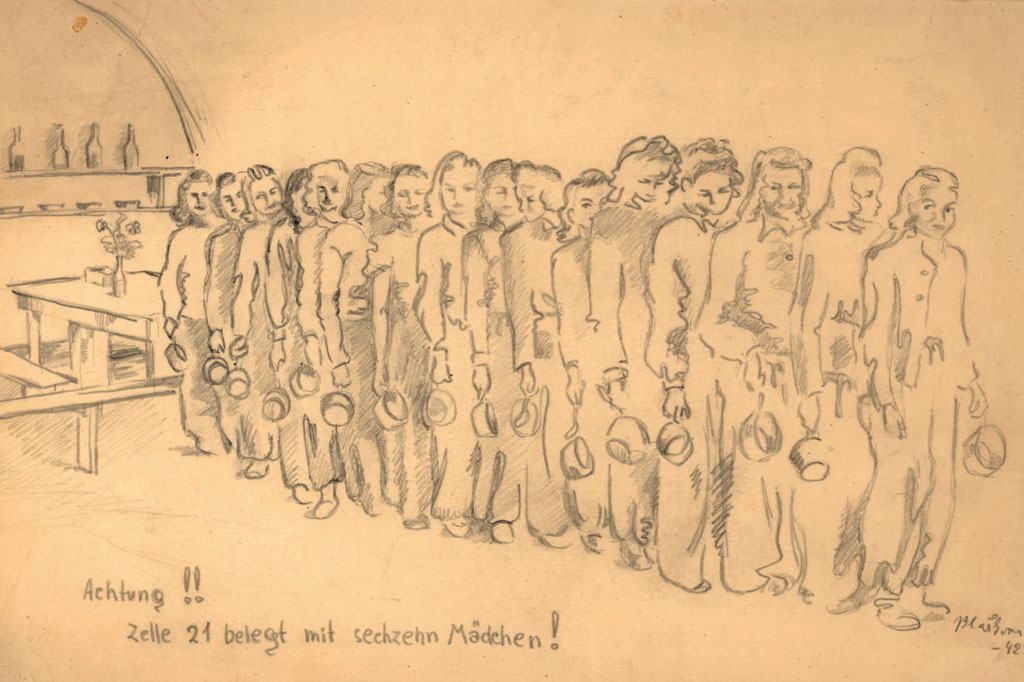 Achtung !!
Zelle 21 belegt mit sechzehn Mädchen!
-42